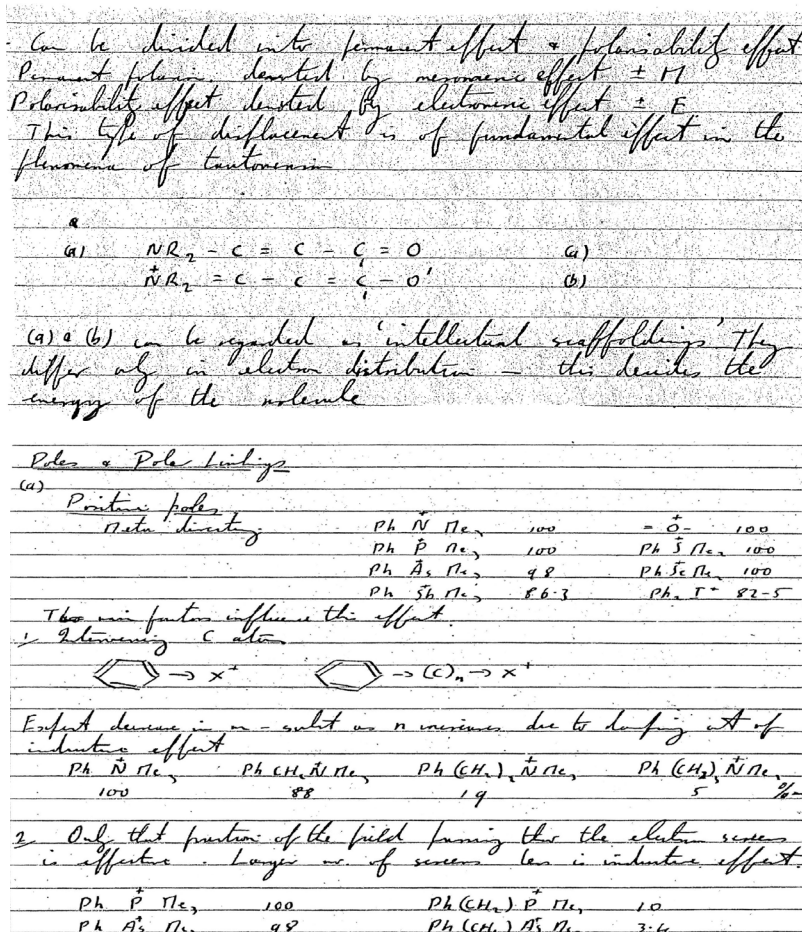 - Can be divided into permanent effect & polarisability effect
Permanent polarin. denoted by mesomeric effect ± M
Polarisability effect denoted by electromeric effect ± E
This type of displacement is of fundamental effect in the
phenomena of tautomerism
(a) NR₂ - C = C - C = O (a)
N⁺R₂ = C - C = C - O' (b)
(a) & (b) can be regarded as 'intellectual scaffoldings' They
differ only in electron distribution — this decides the
energy of the molecule
Poles & Polar Linkings
(a)
Positive poles
Meta directing. Ph N⁺ Me₃ 100 = O⁺ - 100
Ph P⁺ Me₃ 100 Ph S⁺ Me₂ 100
Ph As⁺ Me₃ 98 Ph Se⁺ Me₂ 100
Ph Sb⁺ Me₃ 86.3 Ph₂ I⁺ 82-5
main factors influence this effect.
1, Intervening C atoms
→ X⁺ → (C)ₙ → X⁺
Expect decrease in m - subst as n increases due to damping out of
inductive effect
Ph N⁺ Me₃ Ph CH₂ N⁺ Me₃ Ph (CH₂)₂ N⁺ Me₃ Ph (CH₂)₃ N⁺ Me₃
100 88 19 5 % m
2 Only that portion of the field passing thro the electron screens
is effective. Larger no. of screens less is inductive effect.
Ph P⁺ Me₃ 100 Ph (CH₂) P⁺ Me₃ 10
Ph As⁺ Me₃ 98 Ph (CH₂) As⁺ Me₃ 3.4